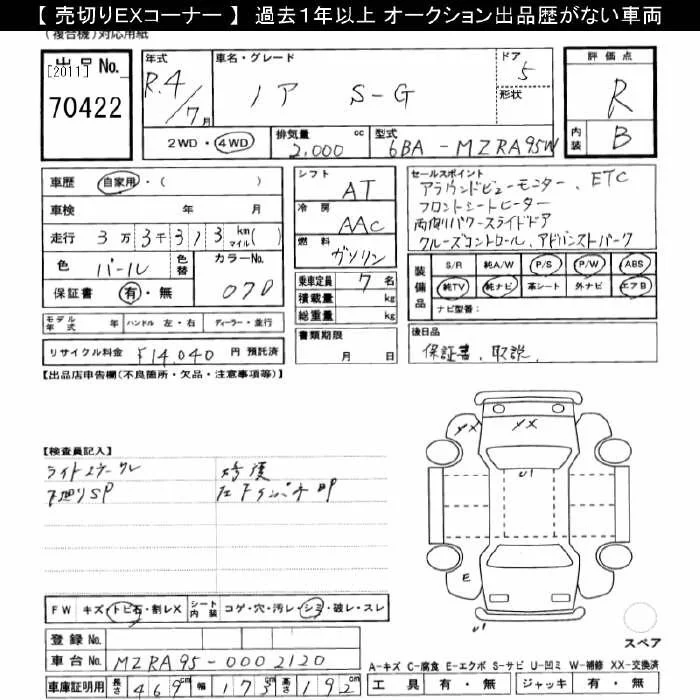 【 売切りEXコーナー 】 過去1年以上 オークション出品歴がない車両
(複合機)対応用紙
出品 No.
[2011]
70422
年式 R.4/7月
車名・グレード ノア S-G
ドア 5
形状
評価点 R
内装 B
2WD・4WD
排気量 2,000 cc
型式 6BA-MZRA95W
車歴 自家用・( )
車検 年 月
走行 3万3千373 km マイル( )
色 パール
色替
カラーNo. 070
保証書 有・無
シフト AT
冷房 AAC
燃料 ガソリン
乗車定員 7名
積載量 kg
総重量 kg
書類期限
月 日
セールスポイント
アラウンドビューモニター、ETC
フロントシートヒーター
両側パワースライドドア
クルーズコントロール、アドバンストパーク
装備品 S/R 純A/W P/S P/W ABS
純TV 純ナビ 革シート 外ナビ エアB
ナビ型番:
モデル年式 年 ハンドル 左・右 ディーラー・並行
リサイクル料金 ¥14,040 円 預託済
後日品
保証書、取説、
【出品店申告欄(不良箇所・欠品・注意事項等)】
【検査員記入】
下廻りSP
XX XX
U1
E
U1
FW キズ・トビ石・割レX シート内装 コゲ・穴・汚レ・シミ・破レ・スレ
スペア
登録 No.
車台 No. MZRA95-0002120
A-キズ C-腐食 E-エクボ S-サビ U-凹ミ W-補修 XX-交換済
車庫証明用 長さ 469cm 幅 173cm 高さ 192cm
工具 有・無 ジャッキ 有・無